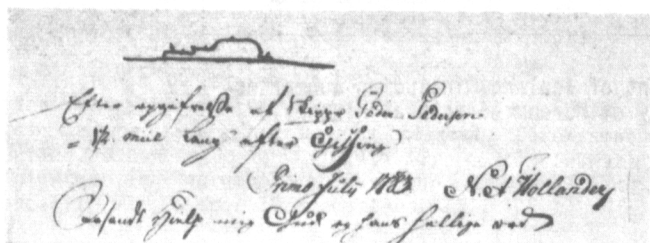 Efter opgifvelse af Skippr Peder Pedersen
= 1/4 miil lang efter Gissing
Primo Julij 1783 N. A Hollander
Saasandt Hielp mig Gud og hans hellige ord